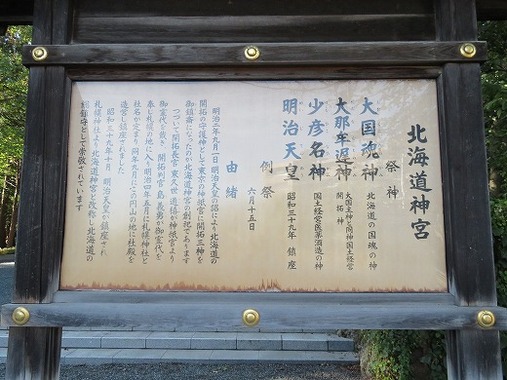 北海道神宮
祭神
大国魂神 北海道の国魂の神
大那牟遅神 大国主神と同神国土経営 開拓神
少彦名神 国土経営医薬酒造の神
明治天皇 昭和三十九年 鎮座
例祭 六月十五日
由緒
明治二年九月一日明治天皇の詔により北海道の
開拓の守護神として東京の神祇官に開拓三神を
御鎮斎になったのが北海道神宮の創祀であります
つづいて開拓長官 東久世 通禧が神祇官より
御霊代を戴き、開拓判官 島 義勇が御霊代を
奉じ札幌の地に入り明治四年五月に札幌神社と
社名が定まり同年九月に円山の地に社殿を
造営し鎮座されました
昭和三十九年十月 明治天皇が鎮座され
札幌神社より北海道神宮と改称し北海道の
総鎮守として崇敬されています